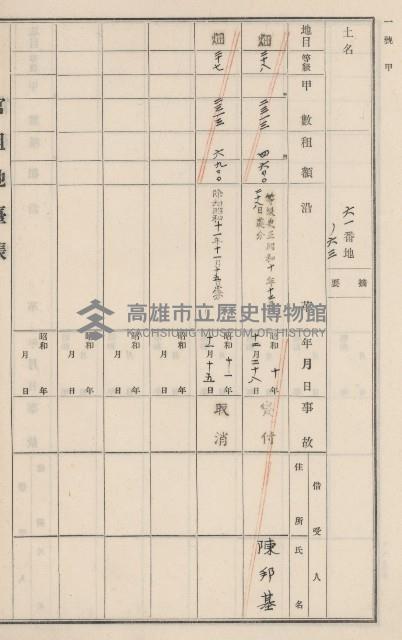 一號甲
土名
六一番地
ノ六三
摘要
地目 等級 甲數 租額 沿革 年月日 事故 借受人 住所 氏名
畑 二十八 二三一三 四六〇〇 等級更正昭和十年十二月二十八日處分 昭和十年十二月二十八日 貸付 陳邦基
畑 二十七 二三一三 六九〇〇 除却昭和十一年十一月十五日 昭和十一年十一月十五日 取消
昭和 年 月 日
昭和 年 月 日
昭和 年 月 日
昭和 年 月 日
官租地臺帳
高雄市立歷史博物館
KAOHSIUNG MUSEUM OF HISTORY